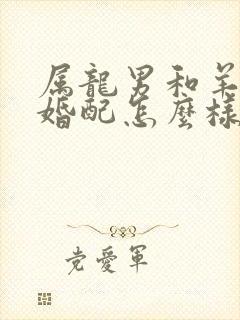 属龍男和羊
婚配怎麼樣
党愛軍